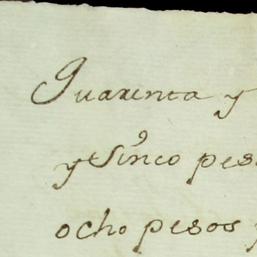 Quarenta y
y Sinco pes
ocho pesos